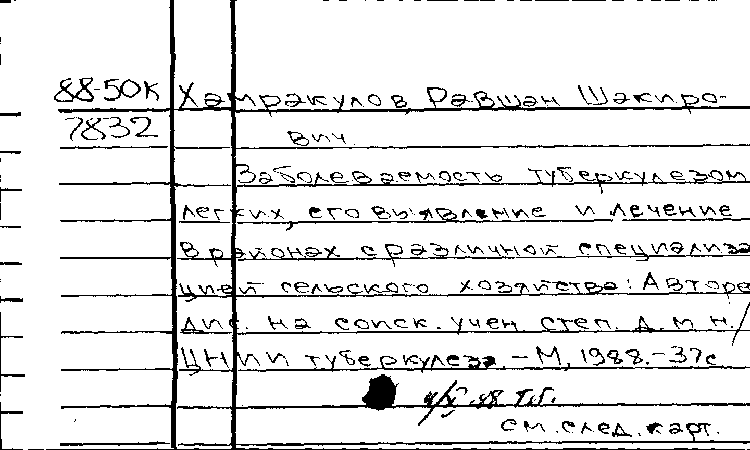 88-50К Хамракулов, Равшан Шакиро-
7832 вич.
Заболеваемость туберкулезом
легких, его выявление и лечение
в районах с различной специализа
цией сельского хозяйства: Авторе
дис. на соиск. учен. степ. д.м.н./
ЦНИИ туберкулеза. – М, 1988. – 37с
88 т.г.
см. след. карт.